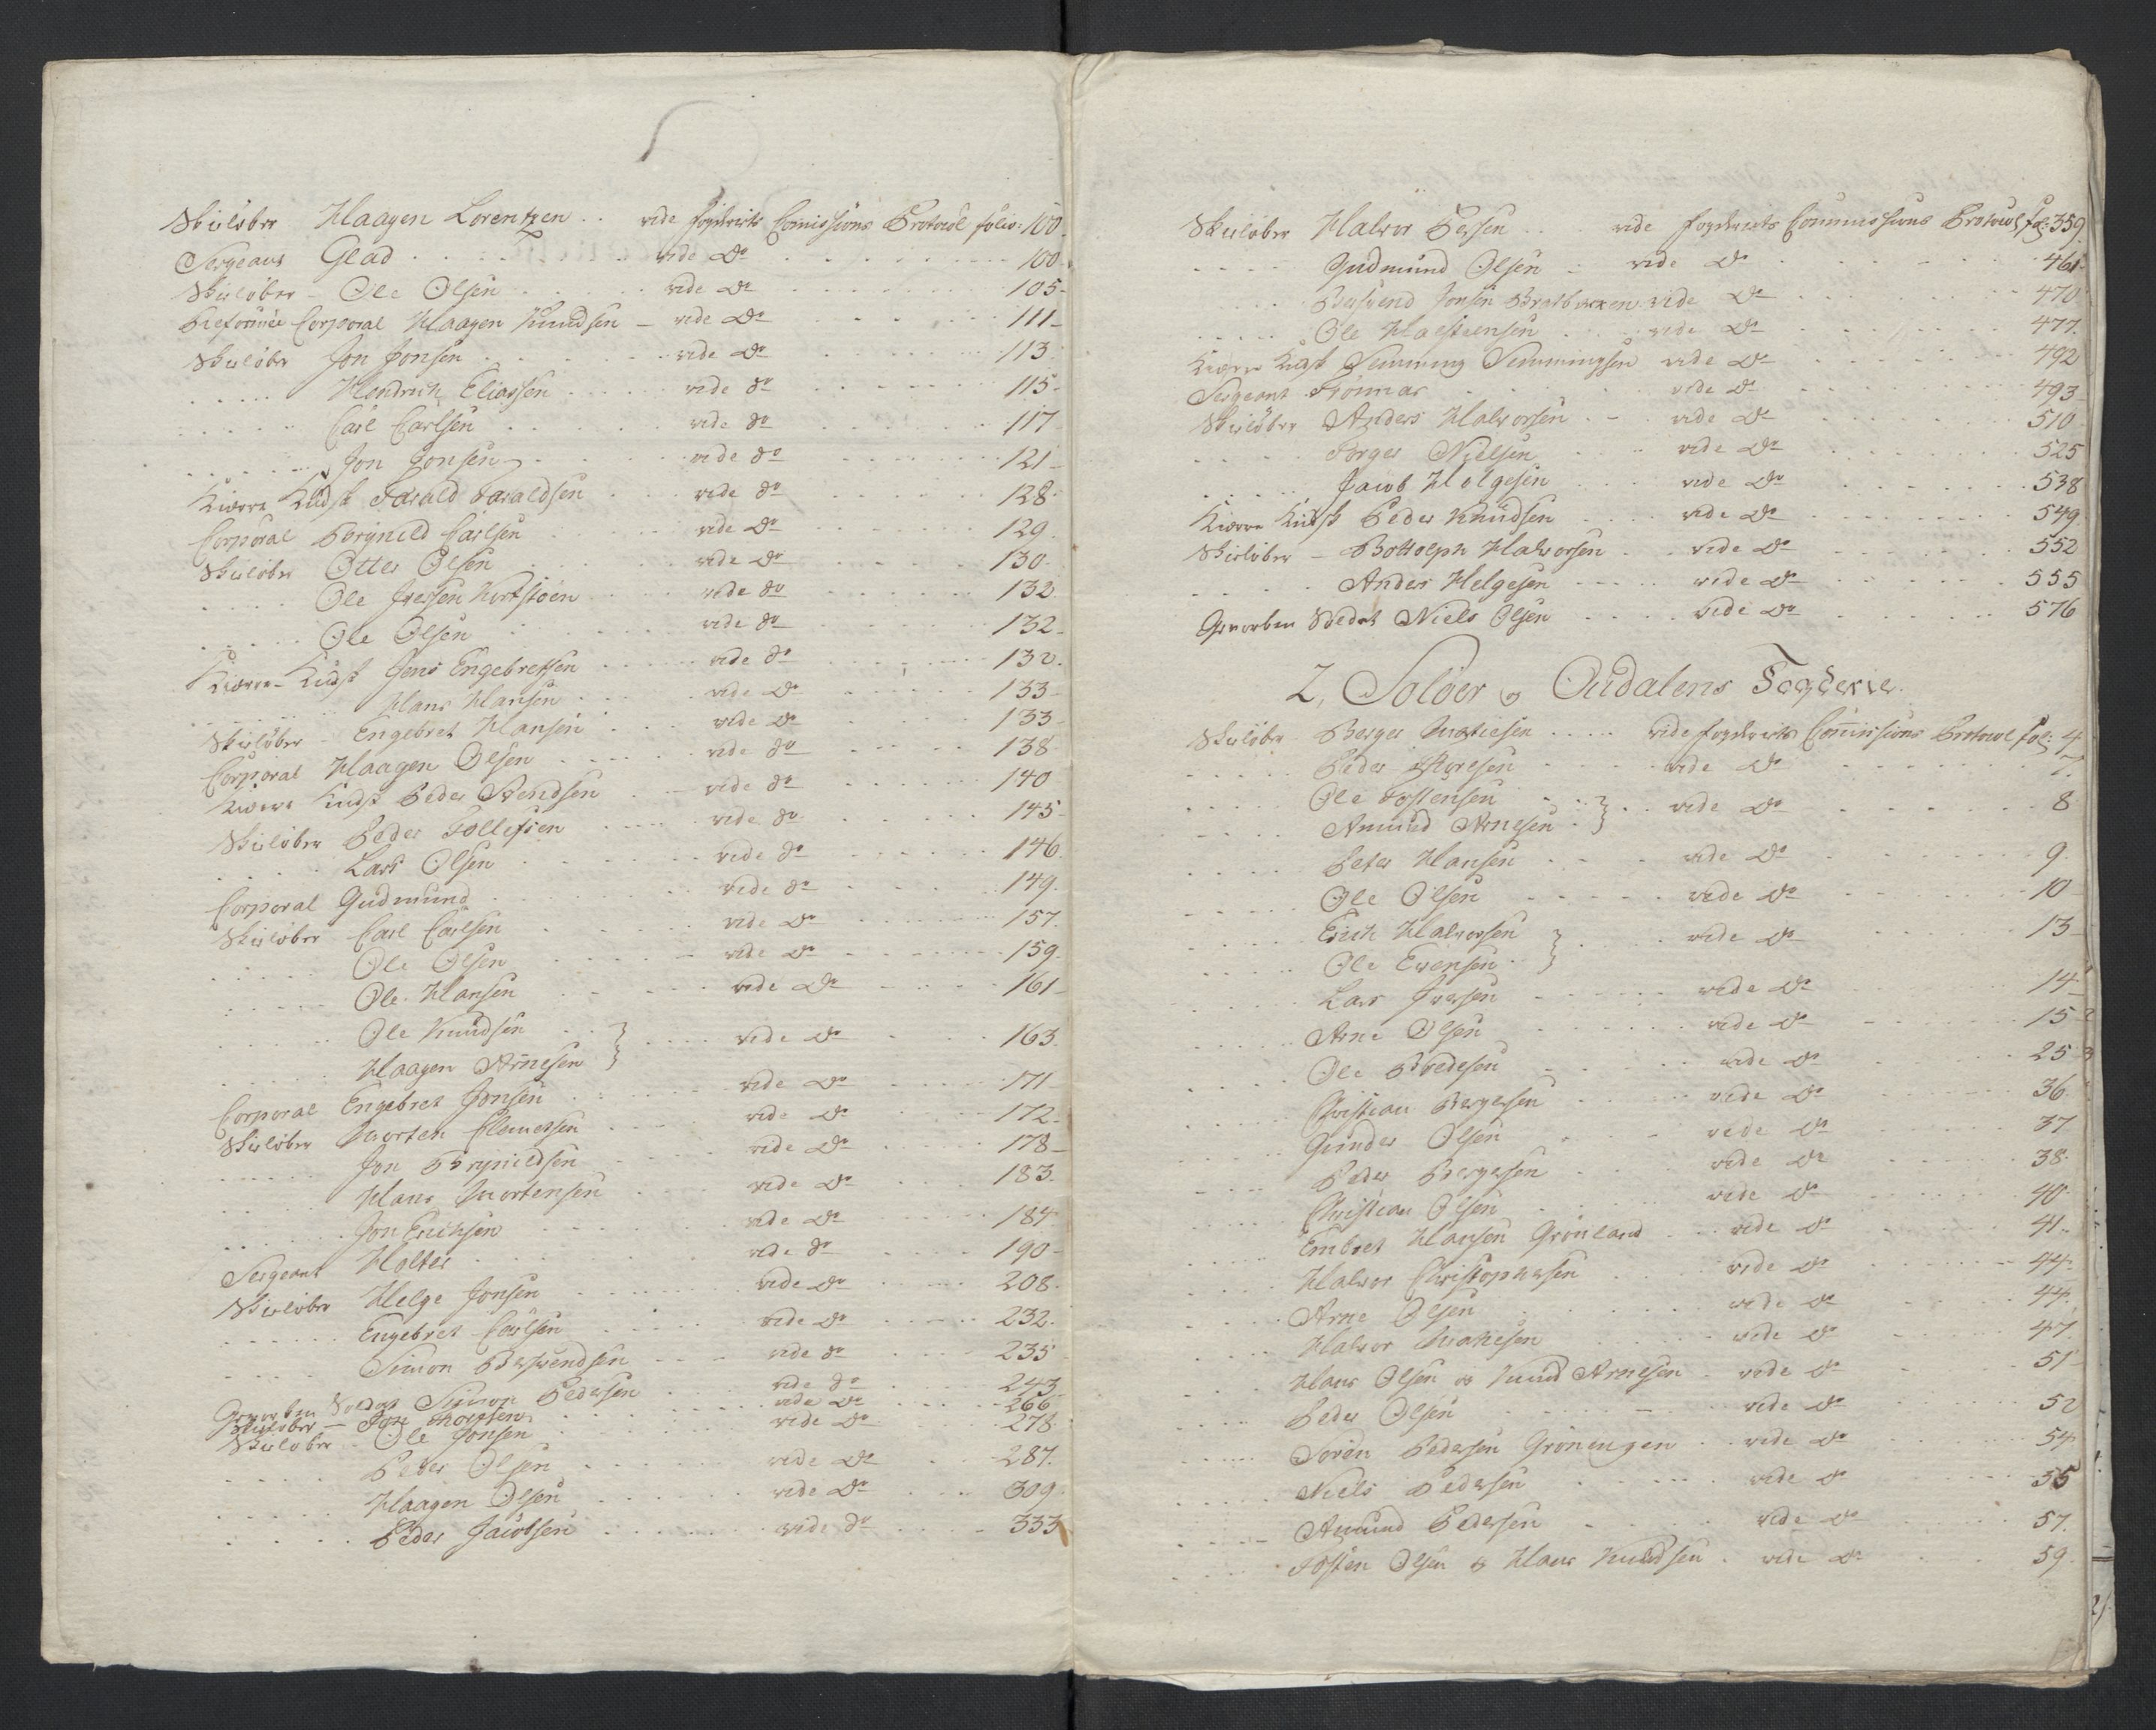 Skieløber Haagen Lorentzen . . vide fogderiets Comissions Protocol folio: 100.
Sergeant Glad . . . . vide Do . . . . 100.
Skieløber - Ole Olsen . . . . vide Do . . . . 105-
Reformée Corporal Haagen Knudsen - vide Do . . . . 111-
Skieløber Jon Jonsen . . . . vide Do . . . . 113.
. . . . Hendrich Eliassen . . . . vide do . . . . 115-
. . . . Carl Carlsen . . . . vide do . . . . 117
. . . . Jon Jonsen . . . . vide do . . . . 121-
Kiørre Kudsk Harald Haraldsen . . . . vide do . . . . 128.
Corporal Brynild Carlsen . . . . vide Do . . . . 129.
Skieløber Otter Olsen . . . . vide Do . . . . 130.
. . . . Ole Iversen . . . . vide do . . . . 132.
. . . . Ole Olsen . . . . vide do . . . . 132-
Kiørre-Kudsk Jens Engebretsen . . . . vide do . . . . 132.
. . . . Hans Hansen . . . . vide Do . . . . 133-
Skieløber - Engebret Hansen . . . . vide Do . . . . 133-
Corporal Haagen Olsen . . . . vide do . . . . 138
Kiørre Kudsk Peder Svendsen . . . . vide do . . . . 140
Skieløber Peder Tollefsen . . . . vide do . . . . 145-
. . . . Lars Olsen . . . . vide do . . . . 146.
Corporal Gudmund . . . . vide do . . . . 149.
Skieløber Carl Carlsen . . . . vide Do . . . . 157.
. . . . Ole Olsen . . . . vide Do . . . . 159.
. . . . Ole Hansen . . . . vide Do . . . . 161-
. . . . Ole Knudsen . . }
. . . . Haagen Arnesen } . . . . vide Do . . . . 163.
Corporal Engebret Jonsen . . . . vide Do . . . . 171-
Skieløber Morten Clemetsen . . . . vide Do . . . . 172.
. . . . Jon Brynildsen . . . . vide Do . . . . 178-
. . . . Hans Mortensen . . . . vide Do . . . . 183.
. . . . Jon Erichsen . . . . vide Do . . . . 184.
Sergeant Holter . . . . vide do . . . . 190-
Skieløber Helge Jonsen . . . . vide Do . . . . 208.
. . . . Engebret Carlsen . . . . vide Do . . . . 232.
. . . . Simon Bersvendsen . . . . vide do . . . . 235
Gevorben Soldat Simon Pedersen . . . . vide do . . . . 243
Skieløber - Jon . . . . vide Do . . . . 266
Skieløber - Ole Jonsen . . . . vide Do . . . . 278.
. . . . Peter Olsen . . . . vide Do . . . . 287.
. . . . Haagen Olsen . . . . vide Do . . . . 309
. . . . Peder Jacobsen . . . . vide do . . . . 333
Skieløber Halvor Persen . . . . vide fogderiets Commissions Protocol fol: 359.
. . . . Gudmund Olsen - vide Do . . . . 461.
. . . . Bersvend Jonsen Bratbacken vide Do . . . . 470
. . . . Ole Halsteensen . . . . vide Do . . . . 477.
Kiørre Kudsk Semming Semmingsen vide Do . . . . 492
Sergeant . . . . vide Do . . . . 493
Skieløber Anders Halvorsen . . . . vide Do . . . . 510
. . . . Torger Nielsen . . . . vide Do . . . . 525
. . . . Jacob Holgesen . . . . vide Do . . . . 538
Kiørre Kudsk Peder Knudsen . . . . vide Do . . . . 549
Skieløber - Bottolph Halvorsen . . . . vide Do . . . . 552
. . . . Anders Helgesen . . . . vide Do . . . . 555
Gevorben Soldat Niels Olsen . . . . vide Do . . . . 576
2, Soløer og Oudalens Fogderie.
Skieløber Berger Matiesen . . . . vide fogderiets Comissions Protocol fol: 4
. . . . Peder . . . . vide Do . . . . 7.
. . . . Ole Tostensen . . }
. . . . Amund Arnesen } . . vide Do . . . . 8
. . . . Peter Hansen . . . . vide Do . . . . 9.
. . . . Ole Olsen . . . . vide Do . . . . 10
. . . . Erich Halvorsen }
. . . . Ole Evensen } . . vide Do . . . . 13
. . . . Lars Iversen . . . . vide Do . . . . 14
. . . . Arne Olsen . . . . vide Do . . . . 15
. . . . Ole Bredesen . . . . vide Do . . . . 25
. . . . Christian Bergersen . . . . vide Do . . . . 36.
. . . . Gunder Olsen . . . . vide Do . . . . 37
. . . . Peder Bergersen . . . . vide Do . . . . 38.
. . . . Christian Olsen . . . . vide Do . . . . 40.
. . . . Embret Hansen Grønland . . . . vide Do . . . . 41.
. . . . Halvor Christophersen . . . . vide Do . . . . 44.
. . . . Arne Olsen . . . . vide Do . . . . 44.
. . . . Halvor Matiesen . . . . vide Do . . . . 47.
. . . . Hans Olsen og Knud Arnesen . vide Do . . . . 51
. . . . Peder Olsen . . . . vide Do . . . . 52
. . . . Søren Pedersen Grøningen . . vide Do . . . . 54
. . . . Niels Pedersen . . . . vide Do . . . . 55
. . . . Amund Pedersen . . . . vide Do . . . . 57.
. . . . Tosten Olsen og Hans Knudsen . vide Do . . . . 59.